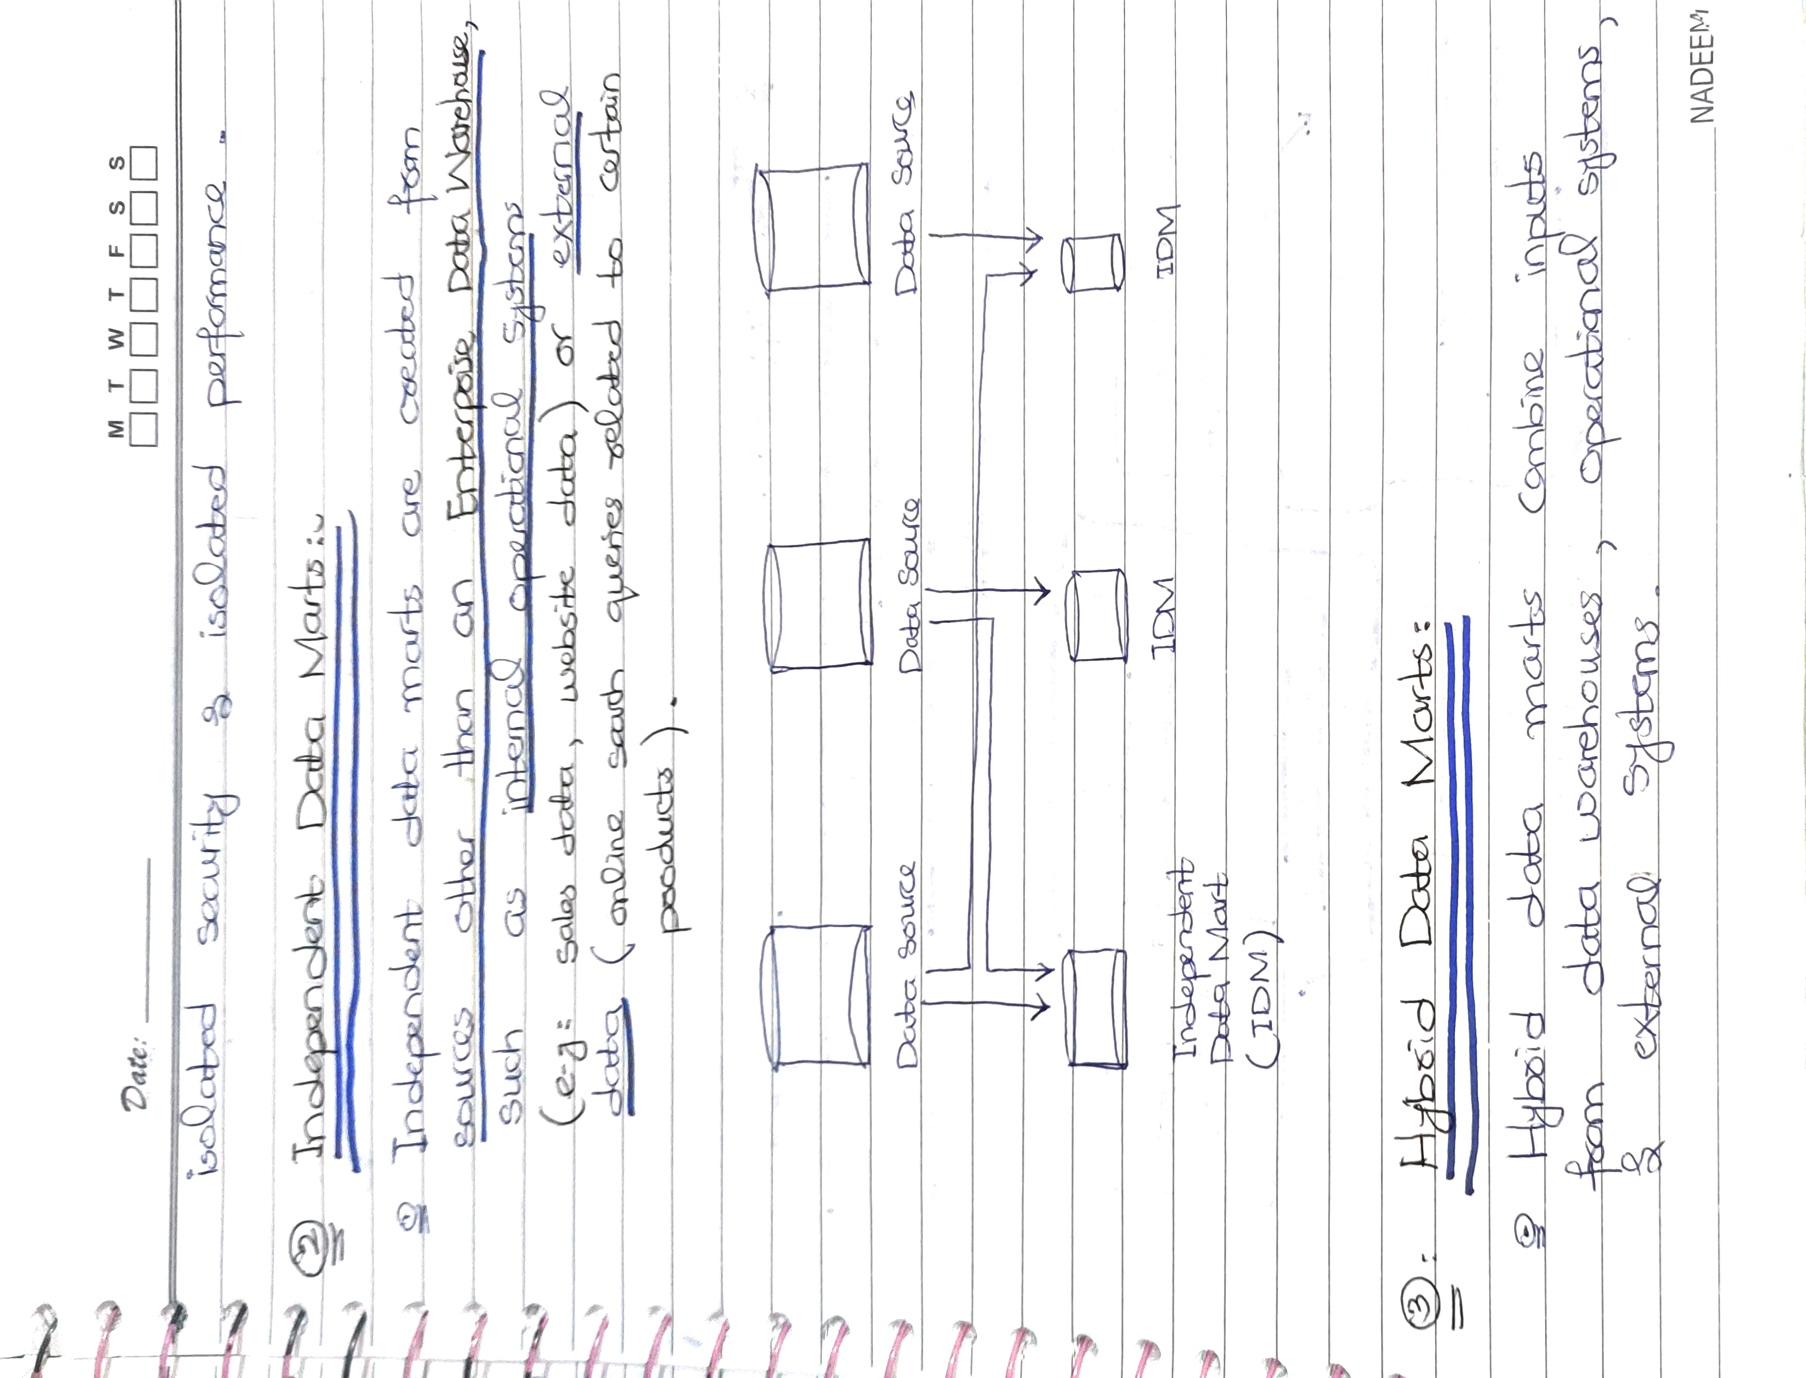 Date:
M T W T F S S
isolated security & isolated performance.
② Independent Data Marts:
Independent data marts are created from
sources other than an Enterprise Data Warehouse,
such as internal operational systems
(e-g: sales data, website data) or external
data (online search queries related to certain
products).
Data Source Data Source Data Source
Independent IDM IDM
Data Mart
(IDM)
③: Hybrid Data Marts:
Hybrid data marts combine inputs
from data warehouses, operational systems,
& external systems.
NADEEM